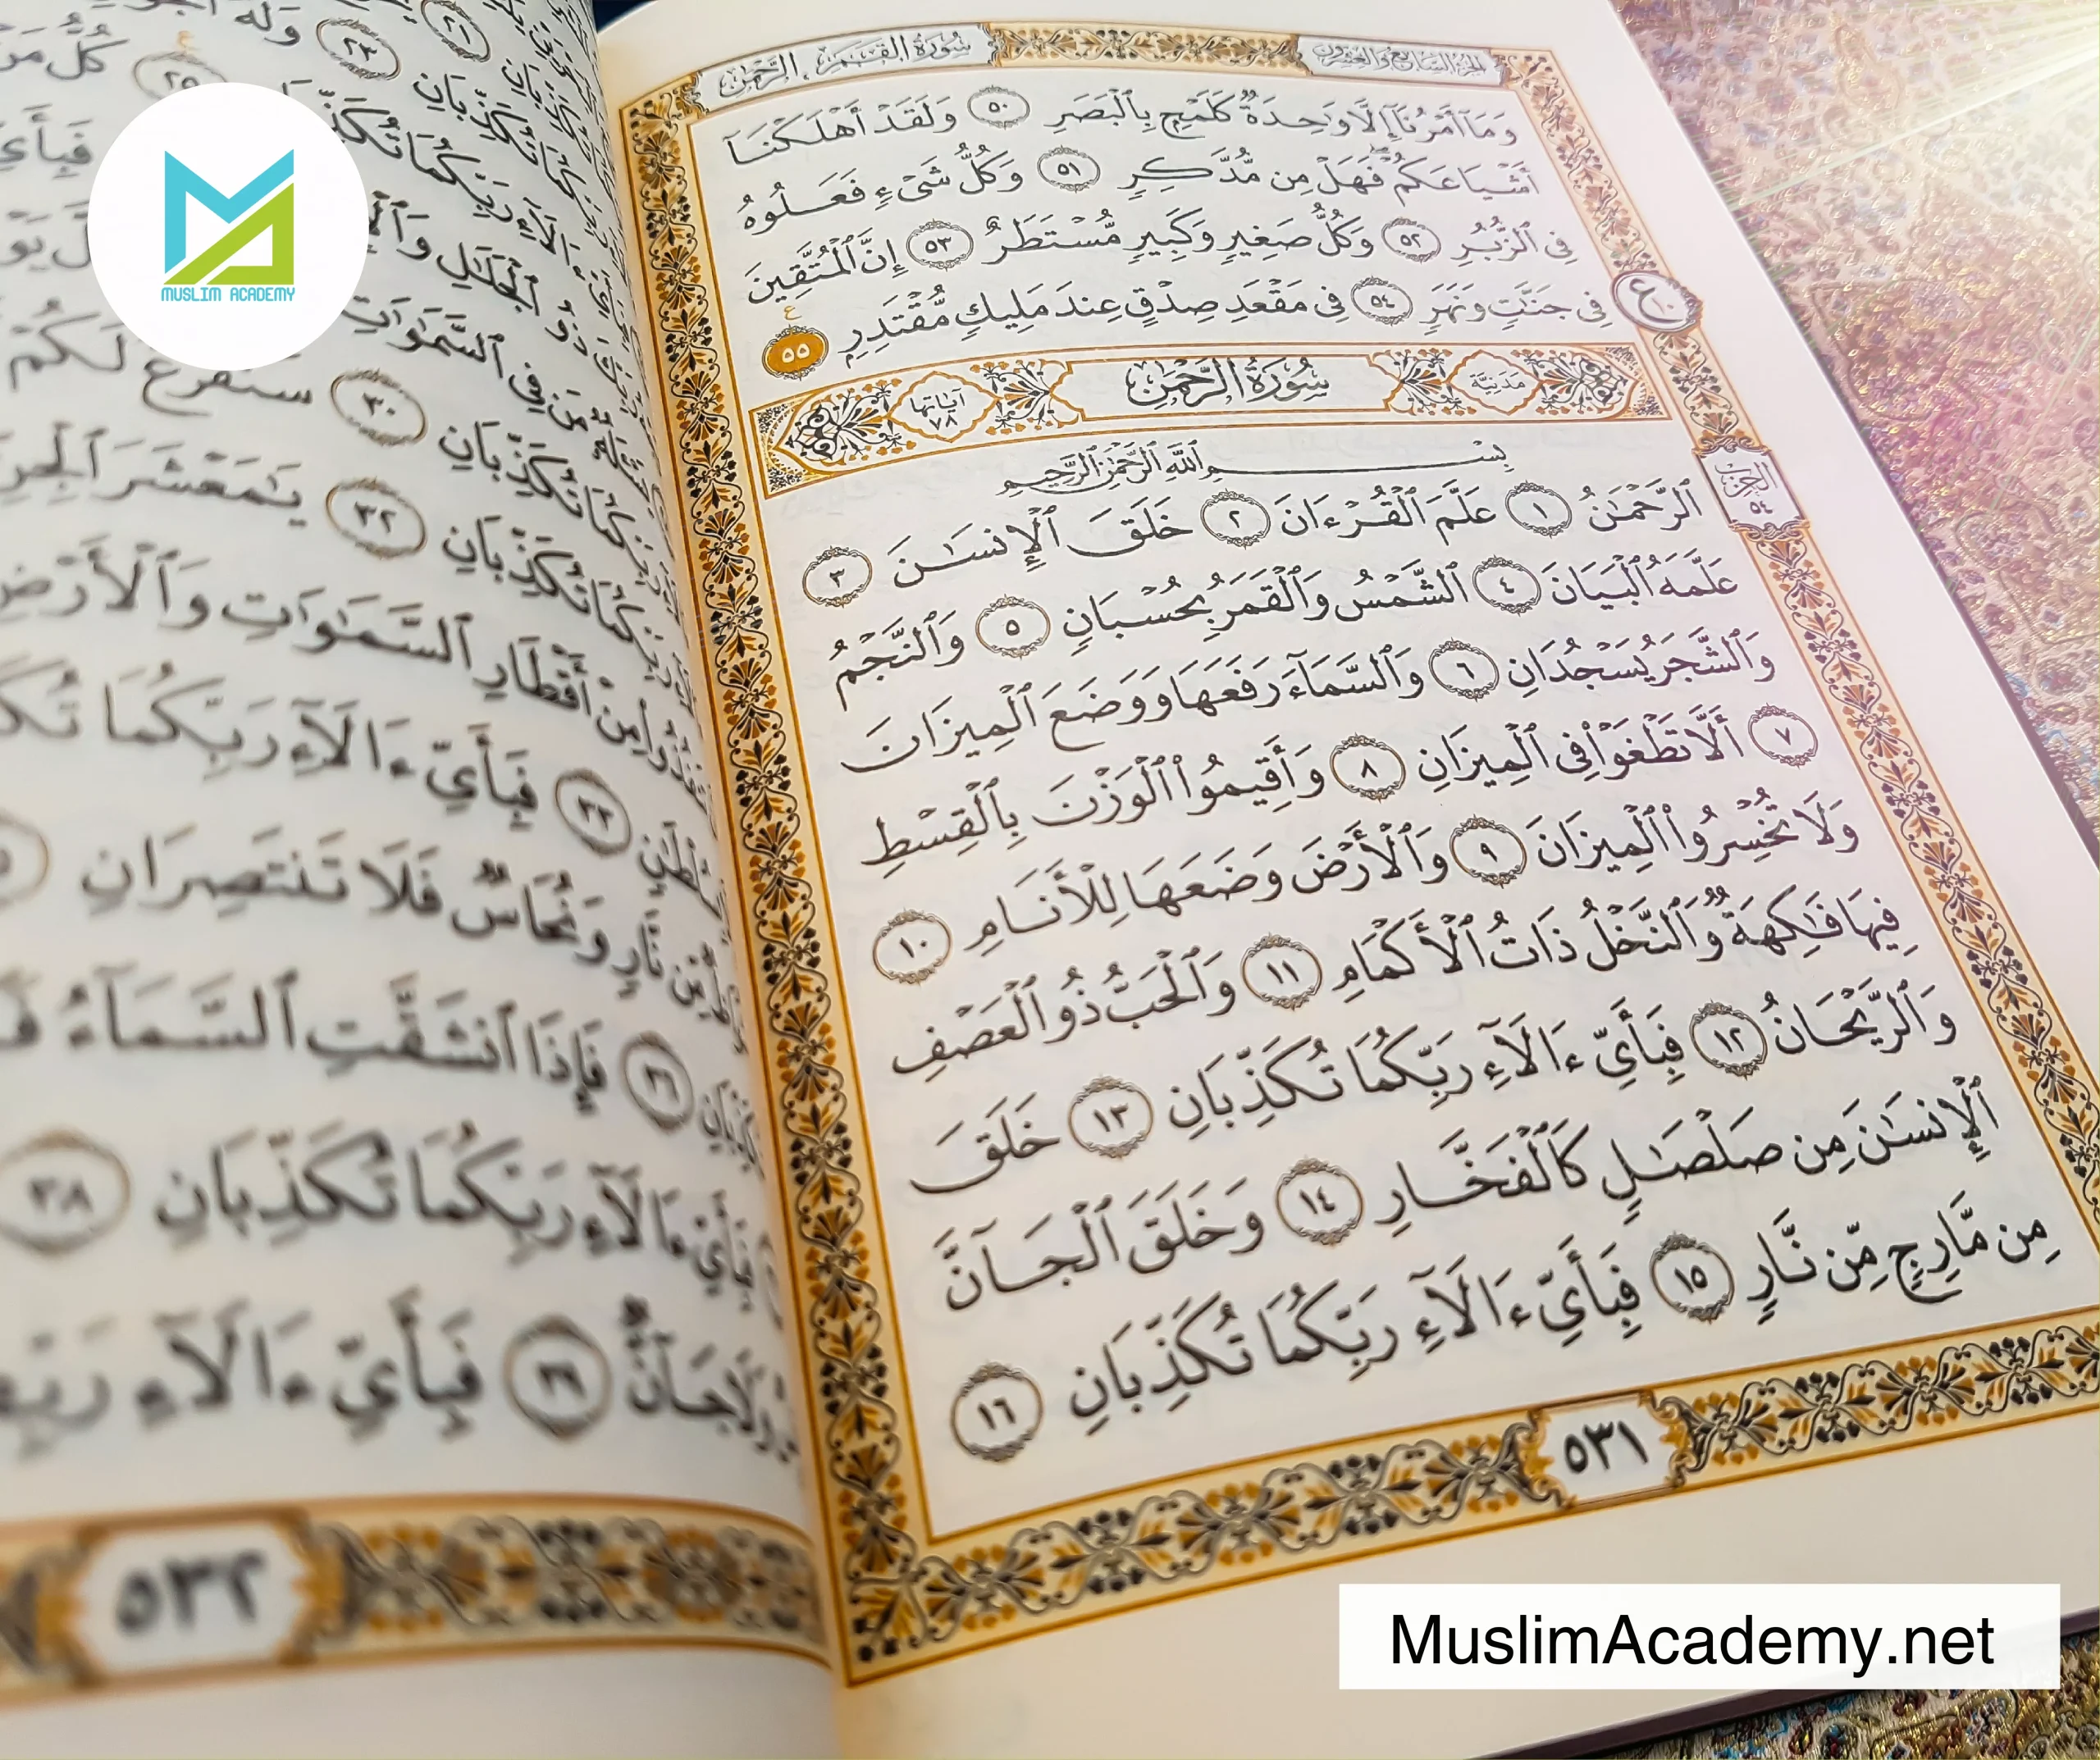 سُورَةُ القَمَرِ ، الرَّحْمٰن
الجزء السابع والعشرون
وَمَآ أَمْرُنَآ إِلَّا وَٰحِدَةٌ كَلَمْحٍۭ بِٱلْبَصَرِ ٥٠ وَلَقَدْ أَهْلَكْنَآ
أَشْيَاعَكُمْ فَهَلْ مِن مُّدَّكِرٍ ٥١ وَكُلُّ شَىْءٍ فَعَلُوهُ
فِى ٱلزُّبُرِ ٥٢ وَكُلُّ صَغِيرٍ وَكَبِيرٍ مُّسْتَطَرٌ ٥٣ إِنَّ ٱلْمُتَّقِينَ
فِى جَنَّٰتٍ وَنَهَرٍ ٥٤ فِى مَقْعَدِ صِدْقٍ عِندَ مَلِيكٍ مُّقْتَدِرٍۭ ٥٥
مَدَنيَّة سُورَةُ الرَّحْمٰن آياتها ٧٨
بِسْمِ ٱللَّهِ ٱلرَّحْمَٰنِ ٱلرَّحِيمِ
ٱلرَّحْمَٰنُ ١ عَلَّمَ ٱلْقُرْءَانَ ٢ خَلَقَ ٱلْإِنسَٰنَ ٣
الحزب ٥٤
عَلَّمَهُ ٱلْبَيَانَ ٤ ٱلشَّمْسُ وَٱلْقَمَرُ بِحُسْبَانٍ ٥ وَٱلنَّجْمُ
وَٱلشَّجَرُ يَسْجُدَانِ ٦ وَٱلسَّمَآءَ رَفَعَهَا وَوَضَعَ ٱلْمِيزَانَ
٧ أَلَّا تَطْغَوْا۟ فِى ٱلْمِيزَانِ ٨ وَأَقِيمُوا۟ ٱلْوَزْنَ بِٱلْقِسْطِ
وَلَا تُخْسِرُوا۟ ٱلْمِيزَانَ ٩ وَٱلْأَرْضَ وَضَعَهَا لِلْأَنَامِ ١٠
فِيهَا فَٰكِهَةٌ وَٱلنَّخْلُ ذَاتُ ٱلْأَكْمَامِ ١١ وَٱلْحَبُّ ذُو ٱلْعَصْفِ
وَٱلرَّيْحَانُ ١٢ فَبِأَىِّ ءَالَآءِ رَبِّكُمَا تُكَذِّبَانِ ١٣ خَلَقَ
ٱلْإِنسَٰنَ مِن صَلْصَٰلٍ كَٱلْفَخَّارِ ١٤ وَخَلَقَ ٱلْجَآنَّ
مِن مَّارِجٍ مِّن نَّارٍ ١٥ فَبِأَىِّ ءَالَآءِ رَبِّكُمَا تُكَذِّبَانِ ١٦
٥٣١
سَنَفْرُغُ لَكُمْ
تُكَذِّبَانِ ٣٢ يَٰمَعْشَرَ ٱلْجِنِّ
مِنْ أَقْطَارِ ٱلسَّمَٰوَٰتِ وَٱلْأَرْضِ
فَبِأَىِّ ءَالَآءِ رَبِّكُمَا
نَّارٍ وَنُحَاسٌ فَلَا تَنتَصِرَانِ
٣٦ فَإِذَا ٱنشَقَّتِ ٱلسَّمَآءُ
ءَالَآءِ رَبِّكُمَا تُكَذِّبَانِ ٣٨
وَلَا جَآنٌّ ٣٩ فَبِأَىِّ ءَالَآءِ
٥٣٢
MUSLIM ACADEMY
MuslimAcademy.net